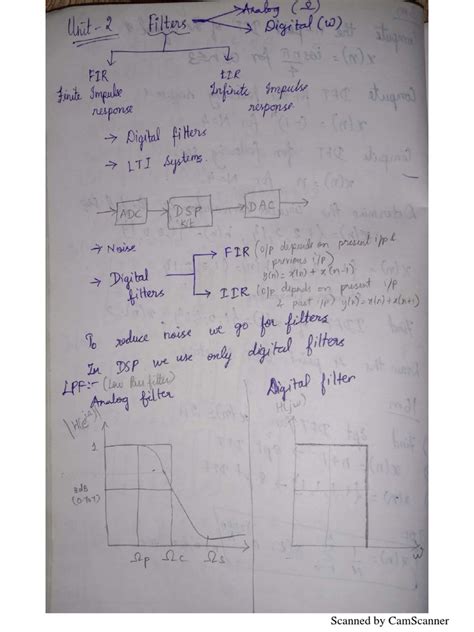 Unit-2 Filters → Analog (Ω)
→ Digital (ω)
FIR
Finite Impulse
response
IIR
Infinite Impulse
response
→ Digital filters
→ LTI Systems.
→ ADC → DSP kit → DAC →
→ Noise
→ Digital filters
→ FIR (O/P depends on present i/p &
previous i/p)
y(n) = x(n) + x(n-1)
→ IIR (O/P depends on present i/p
& past i/p) y(n) = x(n) + x(n+1)
To reduce noise we go for filters
In DSP we use only digital filters
LPF:- (Low Pass filter)
Analog filter
Digital filter
H(jω)
1
(0.707)
Ωp Ωc Ωs
ω
Scanned by CamScanner